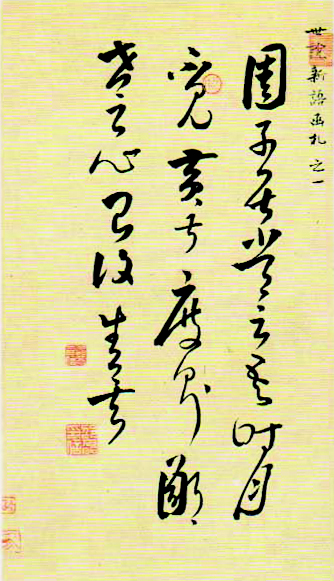 世說新語画札之一
周子居常云吾時月
不見黃叔度則鄙
吝之心已復生矣